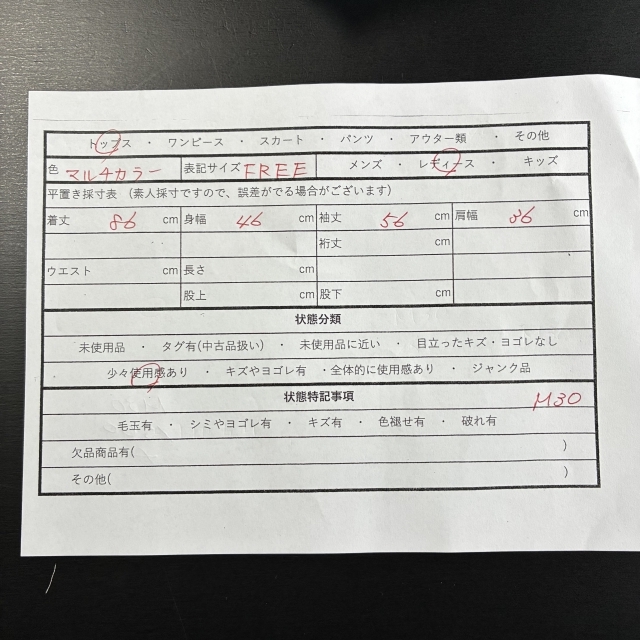 トップス ・ ワンピース ・ スカート ・ パンツ ・ アウター類 ・ その他
色 マルチカラー 表記サイズ FREE メンズ ・ レディース ・ キッズ
平置き採寸表 (素人採寸ですので、誤差がでる場合がございます)
着丈 86 cm 身幅 46 cm 袖丈 56 cm 肩幅 36 cm
裄丈 cm
ウエスト cm 長さ cm
股上 cm 股下 cm
状態分類
未使用品 ・ タグ有(中古品扱い) ・ 未使用品に近い ・ 目立ったキズ・ヨゴレなし
少々使用感あり ・ キズやヨゴレ有 ・全体的に使用感あり ・ ジャンク品
状態特記事項
M30
毛玉有 ・ シミやヨゴレ有 ・ キズ有 ・ 色褪せ有 ・ 破れ有
欠品商品有( )
その他( )